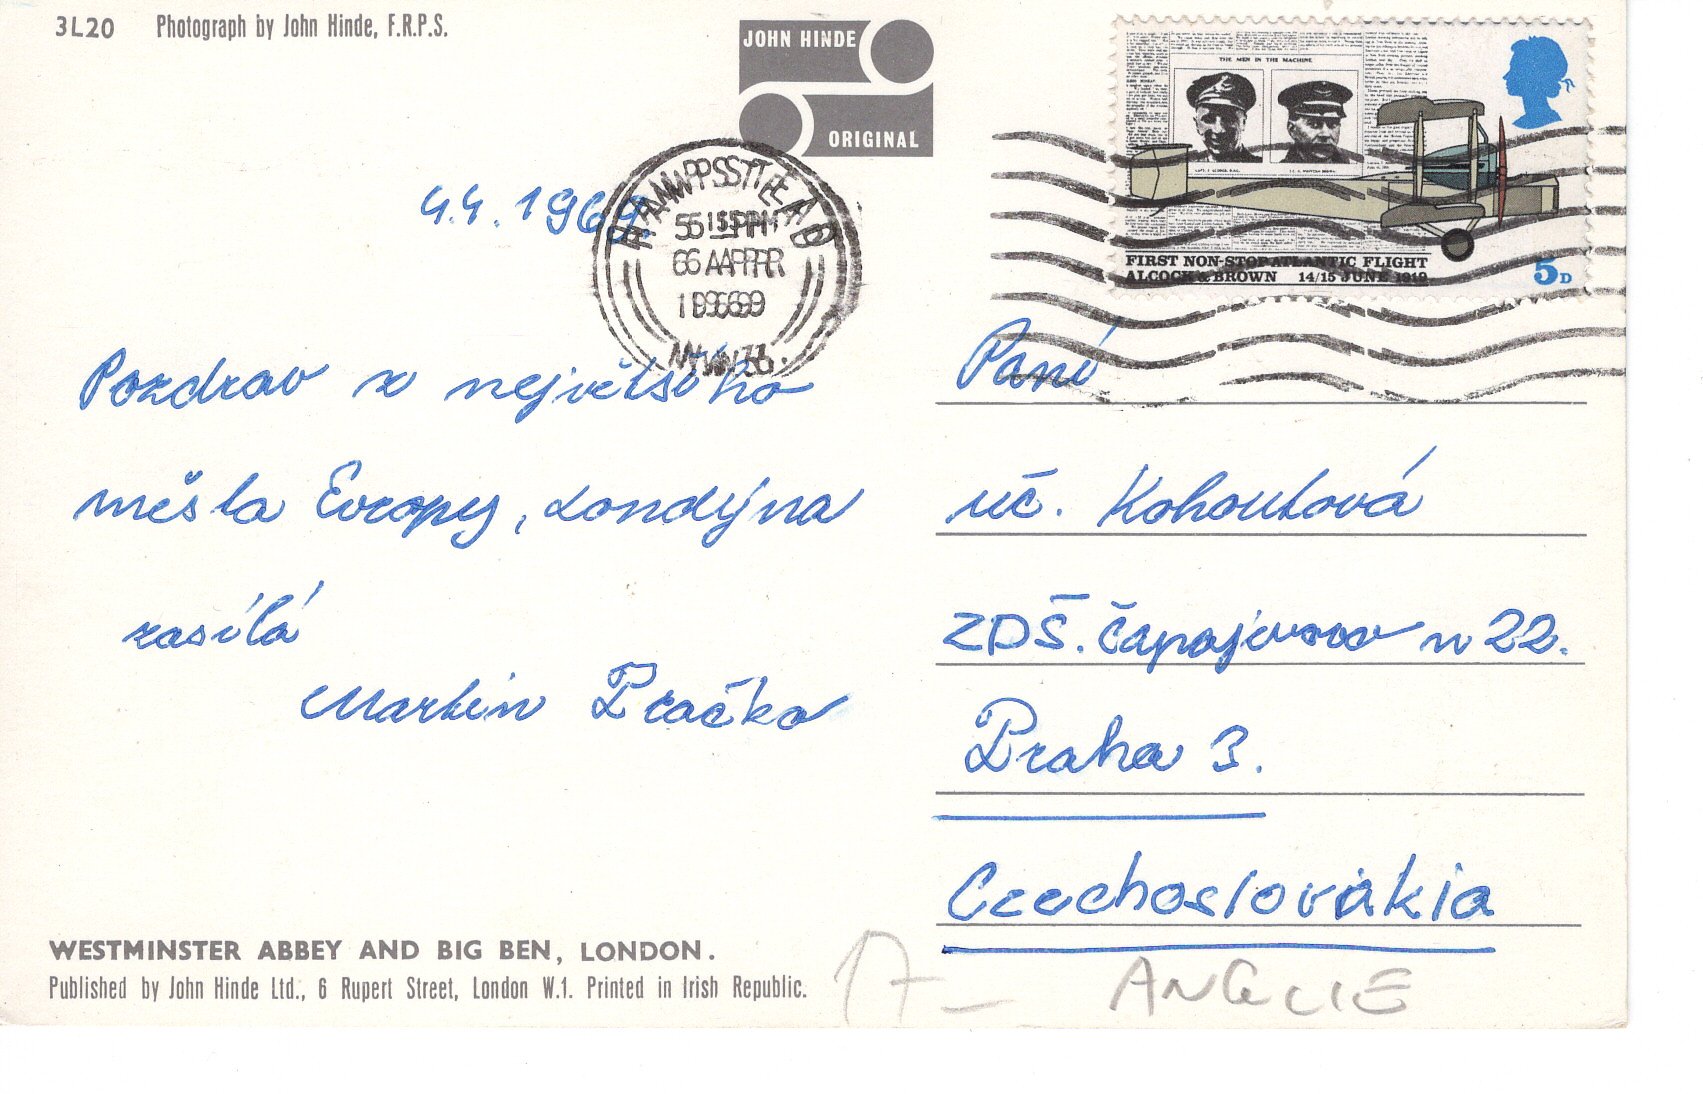 3L20 Photograph by John Hinde, F.R.P.S.
JOHN HINDE
ORIGINAL
THE MEN IN THE MACHINE
FIRST NON-STOP ATLANTIC FLIGHT
ALCOCK & BROWN 14/15 JUNE 1919
5D
4.4.1969
HAMPSTEAD
PM
APR
1969
N.W.3.
Pozdrav z největšího
města Evropy, Londýna
zasílá
Martin Pračka
Paní
uč. Kohoutová
ZDŠ. Čapajevovo n 22.
Praha 3.
Czechoslovakia
WESTMINSTER ABBEY AND BIG BEN, LONDON.
Published by John Hinde Ltd., 6 Rupert Street, London W.1. Printed in Irish Republic.
ANGLIE